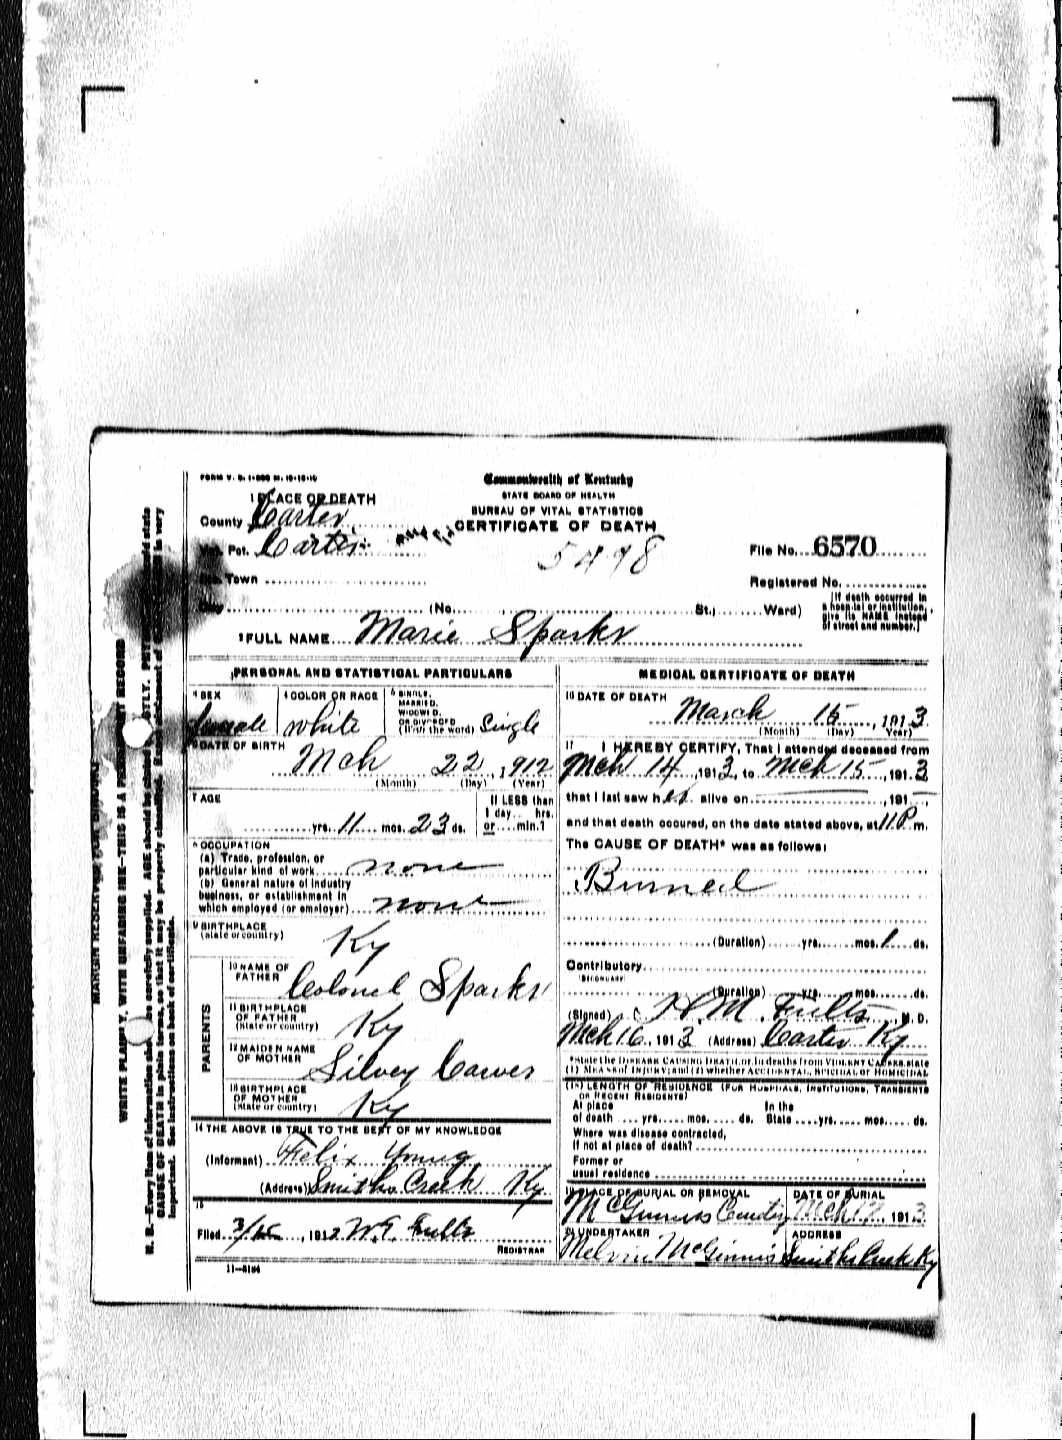 FORM V. S. 1-
Commonwealth of Kentucky
STATE BOARD OF HEALTH
BUREAU OF VITAL STATISTICS
CERTIFICATE OF DEATH
1 PLACE OF DEATH
County Carter
Pct. Carter
5498
File No. 6570
Town
Registered No.
City (No. St.; Ward)
[If death occurred in a hospital or institution, give its NAME instead of street and number.]
2 FULL NAME Marie Sparks
PERSONAL AND STATISTICAL PARTICULARS
3 SEX
female
4 COLOR OR RACE
white
5 SINGLE, MARRIED, WIDOWED, OR DIVORCED (Write the word) Single
6 DATE OF BIRTH
Mch 22, 1912
(Month) (Day) (Year)
7 AGE
yrs. 11 mos. 23 ds.
If LESS than 1 day hrs. or min.?
8 OCCUPATION
(a) Trade, profession, or
particular kind of work none
(b) General nature of industry
business, or establishment in
which employed (or employer) none
9 BIRTHPLACE
(state or country) Ky
PARENTS
10 NAME OF FATHER Colonel Sparks
11 BIRTHPLACE OF FATHER (State or country) Ky
12 MAIDEN NAME OF MOTHER Silvey
13 BIRTHPLACE OF MOTHER (State or country) Ky
14 THE ABOVE IS TRUE TO THE BEST OF MY KNOWLEDGE
(Informant) Felix Young
(Address) Smiths Creek Ky
15
Filed , 191 Fults
REGISTRAR
11-
MEDICAL CERTIFICATE OF DEATH
16 DATE OF DEATH
March 15, 1913
(Month) (Day) Year)
17 I HEREBY CERTIFY, That I attended deceased from
Mch 14, 1913, to Mch 15, 1913
that I last saw her alive on , 191
and that death occured, on the date stated above, at 11 P m.
The CAUSE OF DEATH* was as follows:
Burned
(Duration) yrs. mos. 1 ds.
Contributory
(SECONDARY)
(Duration) yrs. mos. ds.
(Signed) H. M. Fults, M. D.
Mch 16, 1913 (Address) Carter Ky
*State the DISEASE CAUSING DEATH, or, in deaths from VIOLENT CAUSES, state
(1) MEANS OF INJURY; and (2) whether ACCIDENTAL, SUICIDAL or HOMICIDAL
18 LENGTH OF RESIDENCE (FOR HOSPITALS, INSTITUTIONS, TRANSIENTS
OR RECENT RESIDENTS)
At place of death yrs. mos. ds. In the State yrs. mos. ds.
Where was disease contracted,
if not at place of death?
Former or
usual residence
19 PLACE OF BURIAL OR REMOVAL
McGinnis
DATE OF BURIAL
Mch 17, 1913
20 UNDERTAKER
Melvin McGinnis
ADDRESS
Smiths Creek Ky
WRITE PLAINLY, WITH UNFADING INK—THIS IS A PERMANENT RECORD
CAUSE OF DEATH in plain terms, so that it may be properly classified.
important. See instructions on back of certificate.